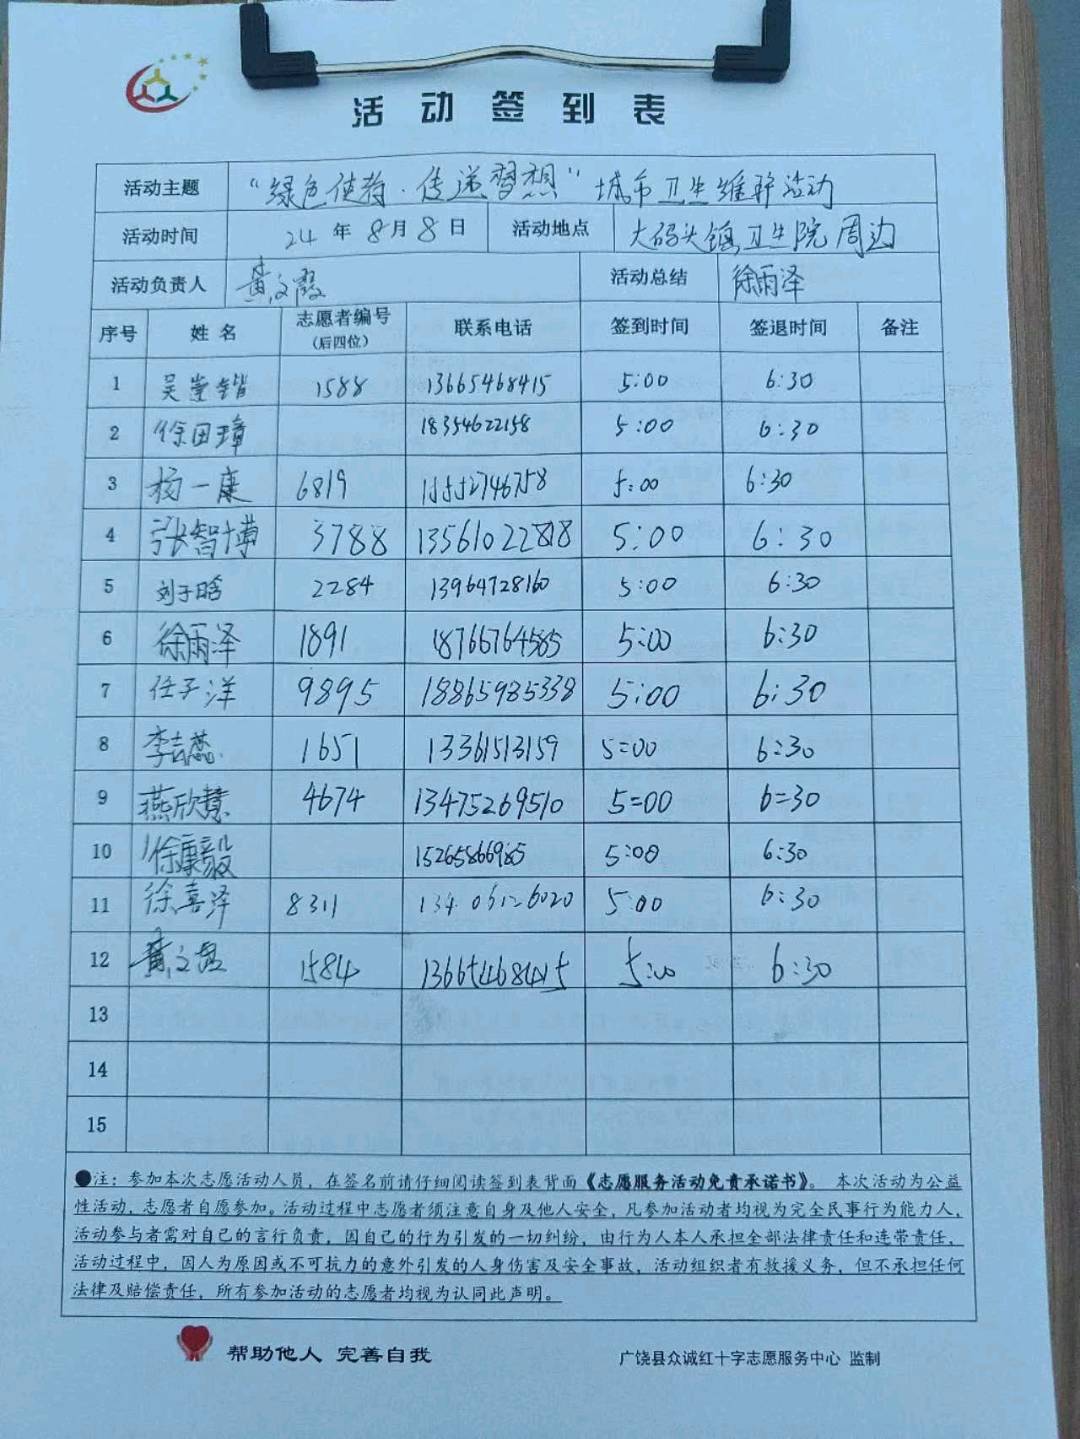 活动签到表
活动主题 “绿色使者·传递梦想”城市卫生维护活动
活动时间 24年8月8日 活动地点 大码头镇卫生院周边
活动负责人 黄文霞 活动总结 徐雨泽
序号 姓名 志愿者编号(后四位) 联系电话 签到时间 签退时间 备注
1 吴 1588 13665468415 5:00 6:30
2 徐田璋 18354622158 5:00 6:30
3 杨一康 6819 15552746758 5:00 6:30
4 张智博 3788 13561022818 5:00 6:30
5 刘子晗 2284 13964728160 5:00 6:30
6 徐雨泽 1891 18766764585 5:00 6:30
7 任子洋 9895 18865985338 5:00 6:30
8 李 1651 13361513159 5:00 6:30
9 燕欣慧 4674 13475269510 5=00 6=30
10 徐康毅 15265866985 5:00 6:30
11 徐喜泽 8311 5:00 6:30
12 黄文霞 1584 13665468415 5:00 6:30
13
14
15
●注：参加本次志愿活动人员，在签名前请仔细阅读签到表背面《志愿服务活动免责承诺书》。本次活动为公益
性活动，志愿者自愿参加。活动过程中志愿者须注意自身及他人安全，凡参加活动者均视为完全民事行为能力人，
活动参与者需对自己的言行负责，因自己的行为引发的一切纠纷，由行为人本人承担全部法律责任和连带责任，
活动过程中，因人为原因或不可抗力的意外引发的人身伤害及安全事故，活动组织者有救援义务，但不承担任何
法律及赔偿责任，所有参加活动的志愿者均视为认同此声明。
帮助他人 完善自我
广饶县众诚红十字志愿服务中心 监制